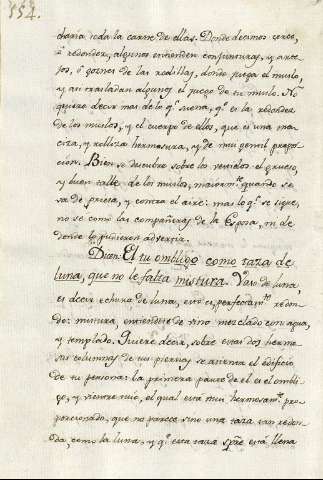 154.
charia toda la carne de ellas. Donde decimos cerco,
ò redondez, algunos entienden conjunturas, y arte-
jos, ò goznes de las rodillas, donde juega el muslo,
y asi trasladan algunos el juego de tu muslo. No
quiere decir mas de lo qᵉ suena, qᵉ es la redondez
de los muslos, y el cuerpo de ellos, que es una ma-
ciza, y rolliza hermosura, y de mui gentil propor-
cion. Bien se descubre sobre los vestidos el grueso,
y buen talle de los muslos, maiormᵗᵉ quando se
va de prisa, y contra el aire: mas lo qᵉ se sigue,
no se como las compañeras de la Esposa, ni de
donde lo pudieron advertir.
Dicen: El tu ombligo como taza de
luna, que no le falta mistura. Vaso de luna,
es decir hechura de luna, esto es, perfectamᵗᵉ redon-
do: mistura, entiendese de vino mezclado con agua,
y templado. Quiere decir, sobre estas dos hermo-
sas columnas de tus piernas se asienta el edificio
de tu persona: la primera parte de el es el ombli-
go, y vientre tuio, el qual está mui hermosamᵗᵉ pro-
porcionado, que no parece sino una taza tan redon-
da, como la luna, y qᵉ esta taza spᵣᵉ está llena